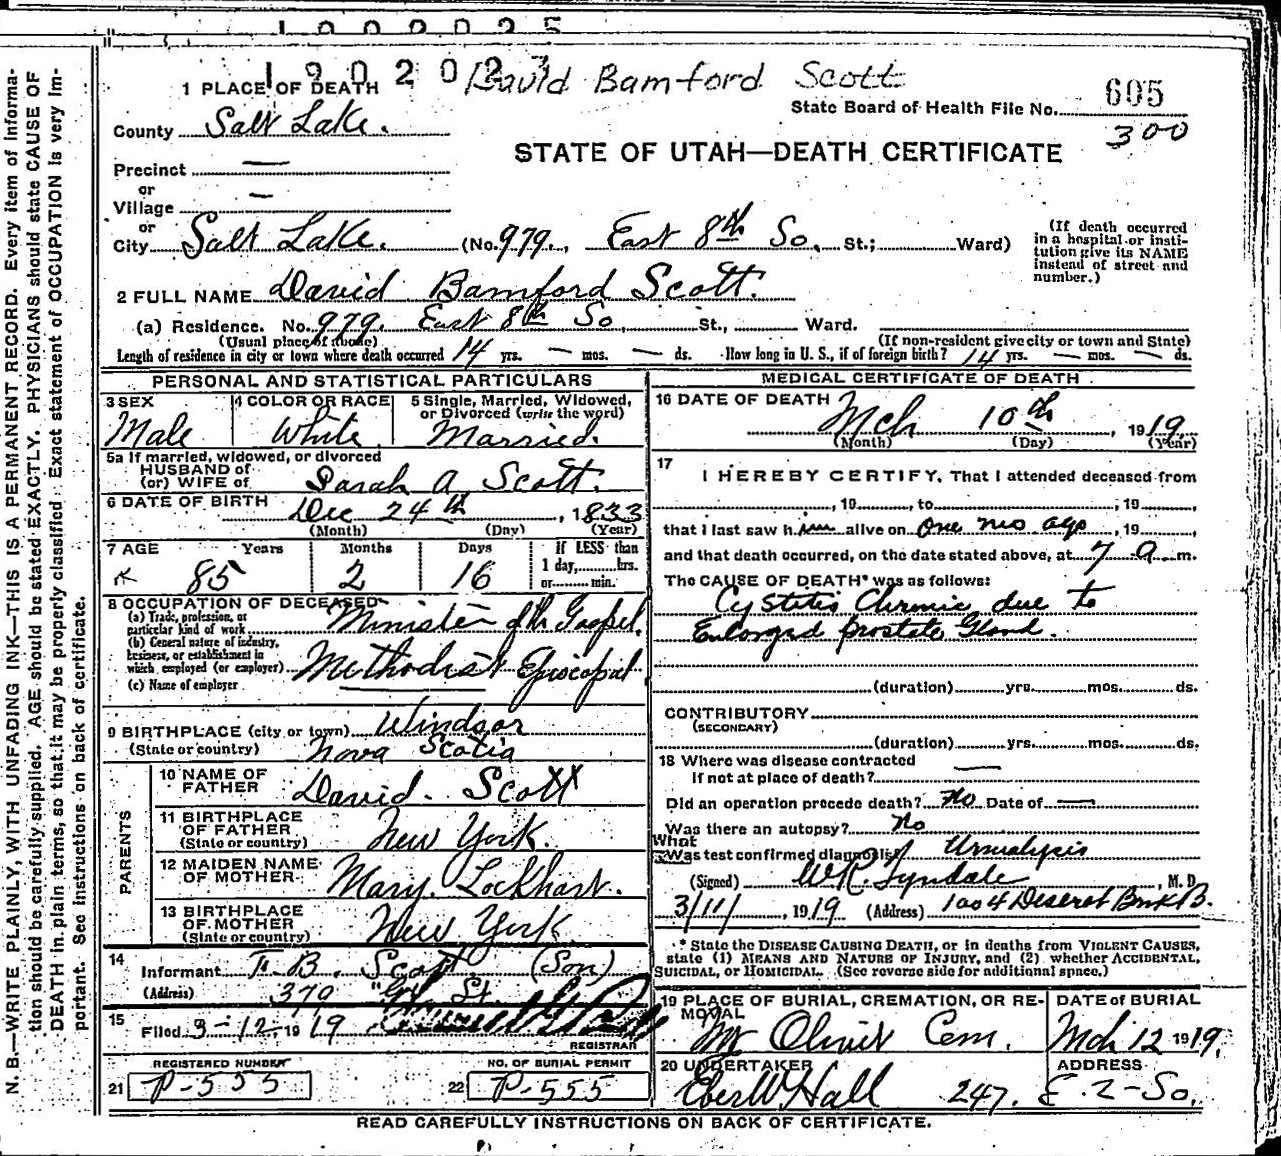 1902023
David Bamford Scott
1 PLACE OF DEATH
State Board of Health File No. 605
300
County Salt Lake.
STATE OF UTAH—DEATH CERTIFICATE
Precinct —
or
Village —
or
City Salt Lake. (No. 979., East 8th So. St.; Ward)
(If death occurred in a hospital or institution give its NAME instead of street and number.)
2 FULL NAME David Bamford Scott.
(a) Residence. No. 979. East 8th So. St., Ward.
(Usual place of abode) (If non-resident give city or town and State)
Length of residence in city or town where death occurred 14 yrs. — mos. — ds. How long in U. S., if of foreign birth? 14 yrs. — mos. — ds.
PERSONAL AND STATISTICAL PARTICULARS
3 SEX Male
4 COLOR OR RACE White
5 Single, Married, Widowed, or Divorced (write the word) Married.
5a If married, widowed, or divorced
HUSBAND of
(or) WIFE of Sarah A Scott.
6 DATE OF BIRTH Dec 24th, 1833
(Month) (Day) (Year)
7 AGE Years Months Days If LESS than
1 day,......hrs.
or......min.
85 2 16
8 OCCUPATION OF DECEASED
(a) Trade, profession, or particular kind of work Minister of the Gospel.
(b) General nature of industry, business, or establishment in which employed (or employer) Methodist Episcopal.
(c) Name of employer
9 BIRTHPLACE (city or town) Windsor
(State or country) Nova Scotia
PARENTS
10 NAME OF FATHER David. Scott
11 BIRTHPLACE OF FATHER (State or country) New York.
12 MAIDEN NAME OF MOTHER Mary. Lockhart.
13 BIRTHPLACE OF MOTHER (State or country) New York
14 Informant F. B. Scott. (Son)
(Address) 379 St.
15 Filed 3-12, 1919
REGISTRAR
REGISTERED NUMBER
21 P-555
NO. OF BURIAL PERMIT
22 P-555
MEDICAL CERTIFICATE OF DEATH
16 DATE OF DEATH Mch 10th, 1919
(Month) (Day) (Year)
17 I HEREBY CERTIFY, That I attended deceased from
, 19 , to , 19 ,
that I last saw him alive on One mo ago, 19 ,
and that death occurred, on the date stated above, at 7 a m.
The CAUSE OF DEATH* was as follows:
Cystitis Chronic due to
Enlarged prostate Gland.
(duration) yrs. mos. ds.
CONTRIBUTORY
(SECONDARY)
(duration) yrs. mos. ds.
18 Where was disease contracted
If not at place of death? —
Did an operation precede death? No Date of —
Was there an autopsy? No
What
Was test confirmed diagnosis? Urinalysis
(Signed) W R Tyndale, M. D.
3/11/, 1919 (Address) 1004 Deseret Bnk B.
* State the DISEASE CAUSING DEATH, or in deaths from VIOLENT CAUSES, state (1) MEANS AND NATURE OF INJURY, and (2) whether ACCIDENTAL, SUICIDAL, or HOMICIDAL. (See reverse side for additional space.)
19 PLACE OF BURIAL, CREMATION, OR REMOVAL Mt Olivet Cem.
DATE of BURIAL Mch 12 1919.
20 UNDERTAKER Eber W Hall
ADDRESS 247. E. 2-So.
READ CAREFULLY INSTRUCTIONS ON BACK OF CERTIFICATE.
N. B.—WRITE PLAINLY, WITH UNFADING INK—THIS IS A PERMANENT RECORD. Every item of information should be carefully supplied. AGE should be stated EXACTLY. PHYSICIANS should state CAUSE OF DEATH in plain terms, so that it may be properly classified. Exact statement of OCCUPATION is very important. See instructions on back of certificate.